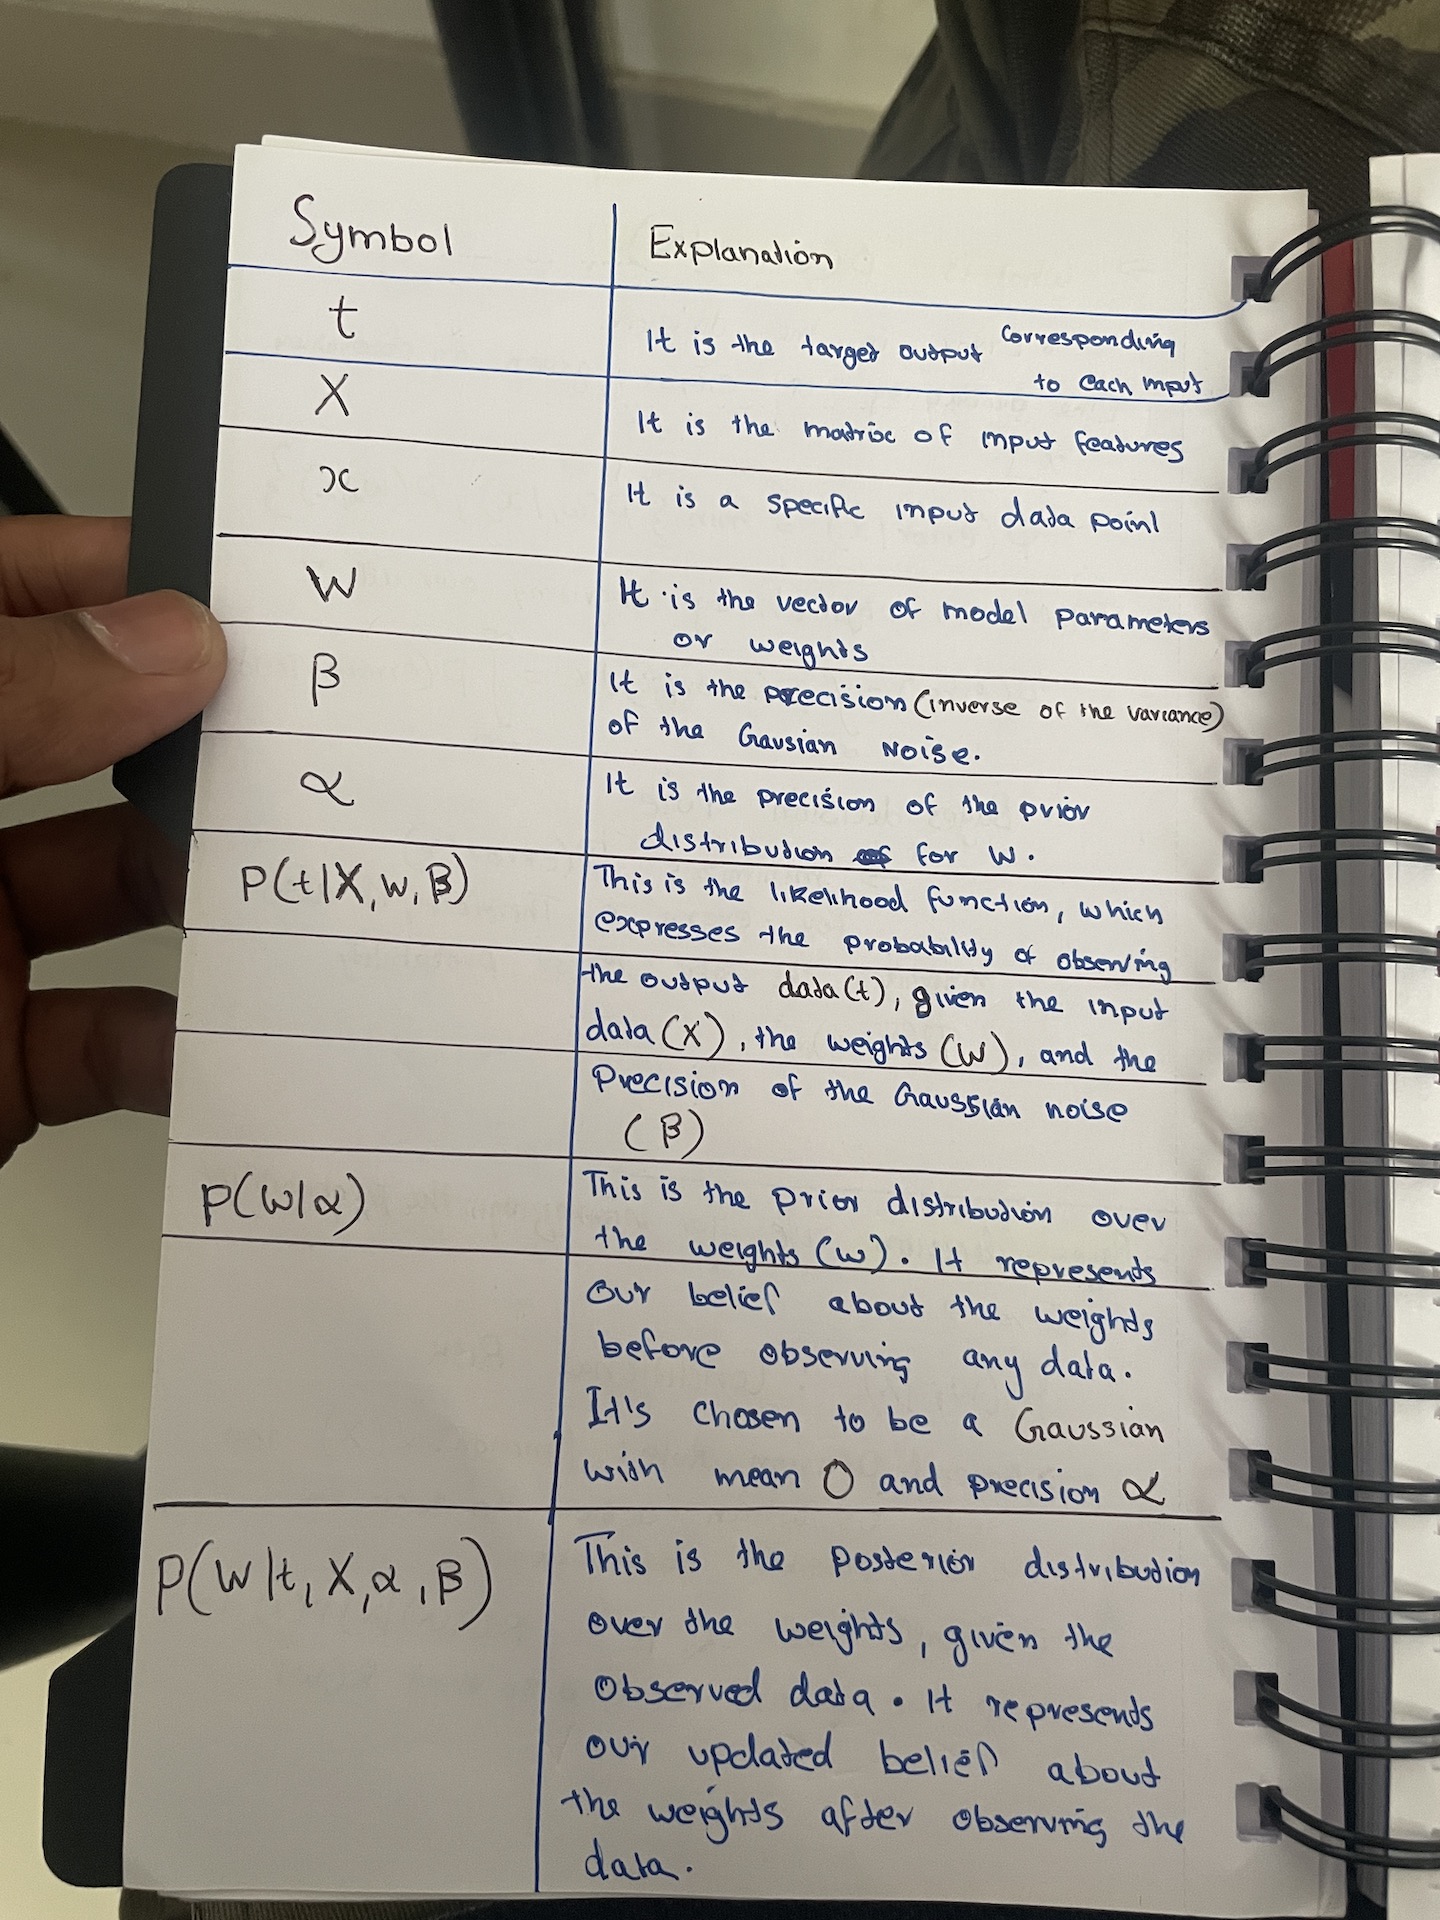 Symbol Explanation
t It is the target output corresponding
to each input
X It is the matrix of input features
x It is a specific input data point
W It is the vector of model parameters
or weights
β It is the precision (inverse of the variance)
of the Gausian Noise.
α It is the precision of the prior
distribution for W.
P(t|X, W, β) This is the likelihood function, which
expresses the probability of observing
the output data (t), given the input
data (X), the weights (W), and the
Precision of the Gaussian noise
(β)
P(W|α) This is the prior distribution over
the weights (w). It represents
our belief about the weights
before observing any data.
It's chosen to be a Gaussian
with mean 0 and precision α
P(W|t, X, α, β) This is the posterior distribution
over the weights, given the
observed data. It represents
our updated belief about
the weights after observing the
data.